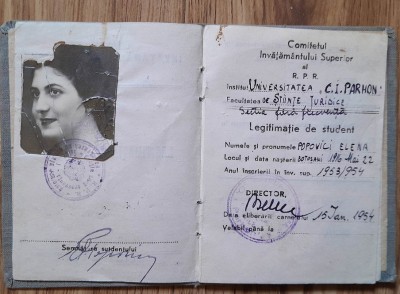 Semnătura studentului
Comitetul
Învățământului Superior
al
R. P. R.
Institut UNIVERSITATEA "C.I. PARHON"
Facultatea DE ȘTIINȚE JURIDICE
Secția fără frecvență
Legitimație de student
Numele și pronumele POPOVICI ELENA
Locul și data nașterii BOTOȘANI Mai 22
Anul înscrierii în înv. sup. 1953/954
DIRECTOR,
Data eliberării carnet 15 Jan. 1954
Valabil până la